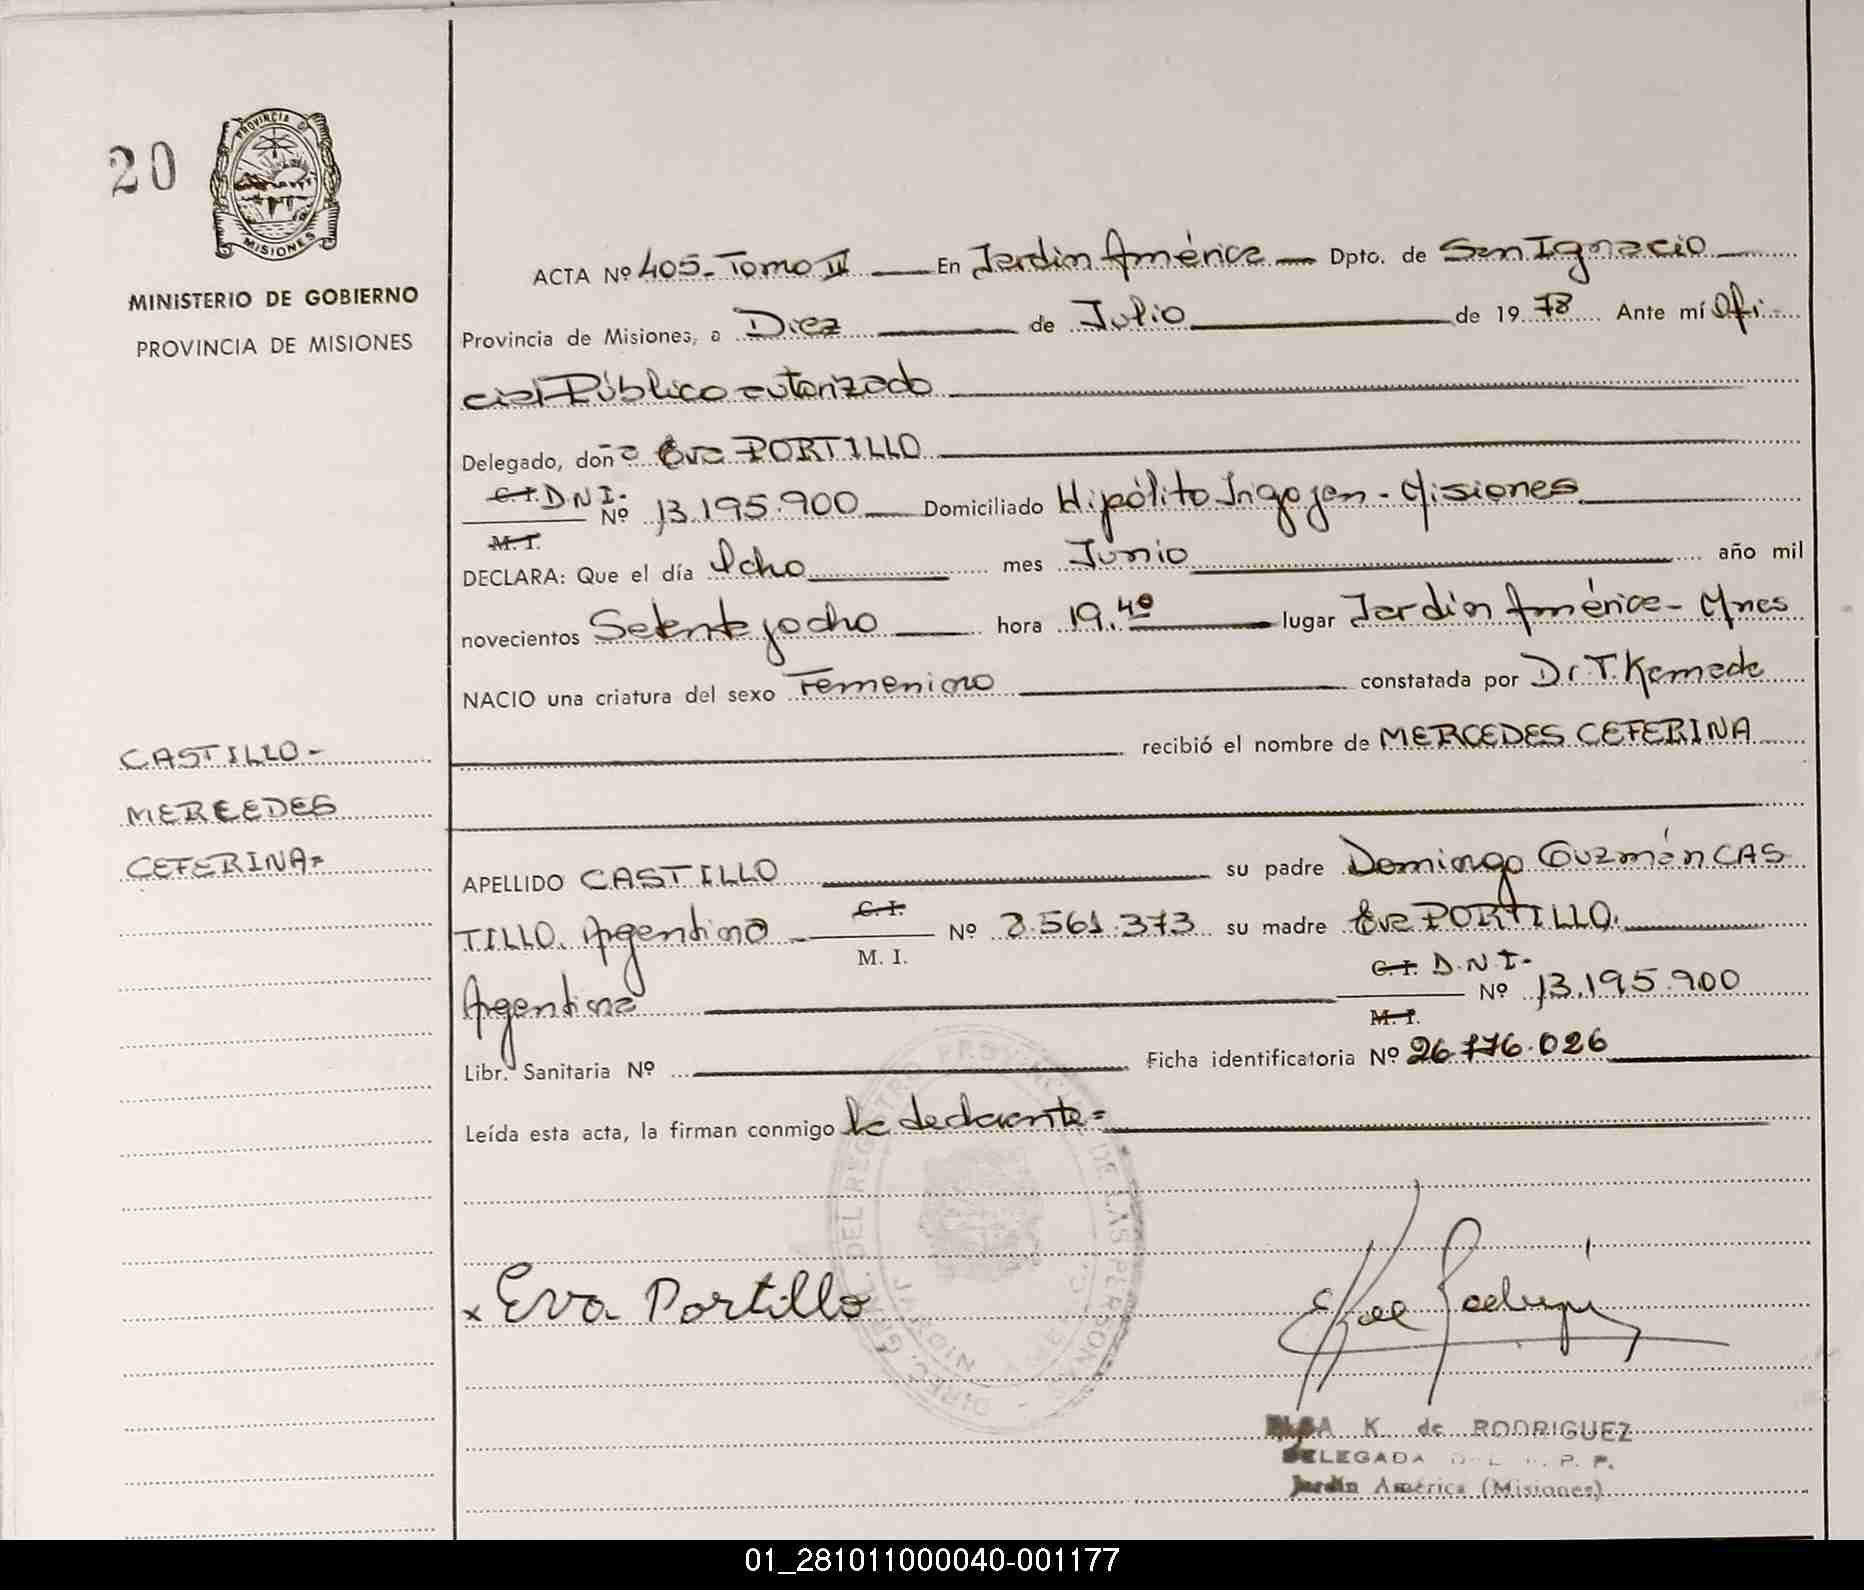 20
PROVINCIA DE
MISIONES
MINISTERIO DE GOBIERNO
PROVINCIA DE MISIONES
CASTILLO-
MERCEDES
CEFERINA=
ACTA Nº 405- Tomo II En Jardin América Dpto. de San Ignacio
Provincia de Misiones, a Diez de Julio de 1978 Ante mí Ofi-
cial Público autorizado
Delegado, doña Eva PORTILLO
C.I. D N I-
Nº 13.195.900 Domiciliado Hipólito Irigoyen - Misiones
M. I.
DECLARA: Que el día Ocho mes Junio año mil
novecientos Setenta y ocho hora 19.40 lugar Jardin América- Mnes
NACIO una criatura del sexo Femenino constatada por Dr T. Kamada
recibió el nombre de MERCEDES CEFERINA
APELLIDO CASTILLO su padre Domingo Guzmán CAS
TILLO. Argentino C. I. Nº 8.561.373 su madre Eva PORTILLO.
M. I.
Argentina C. I. D.N.I- Nº 13.195.900
M. I.
Libr. Sanitaria Nº Ficha identificatoria Nº 26.776.026
Leída esta acta, la firman conmigo la declarante=
x Eva Portillo
ELSA K. de RODRIGUEZ
DELEGADA
Jardín América (Misiones)
01_281011000040-001177